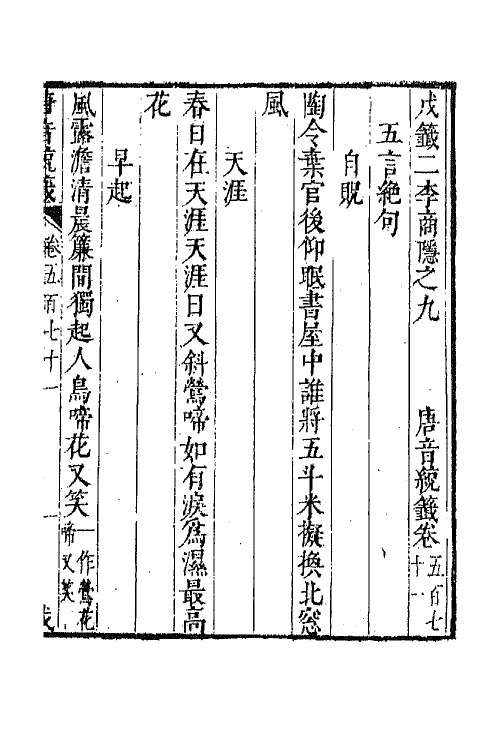 戊籤二李商隱之九　唐音統籤卷五百七十一
五言絶句
自貺
陶令棄官後仰眠書屋中誰將五斗米擬換北窓
風
天涯
春日在天涯天涯日又斜鶯啼如有淚爲濕最高
花
早起
風露澹清晨簾間獨起人鳥啼花又笑一作鶯花啼又笑
唐音統籤 卷五百七十一 一